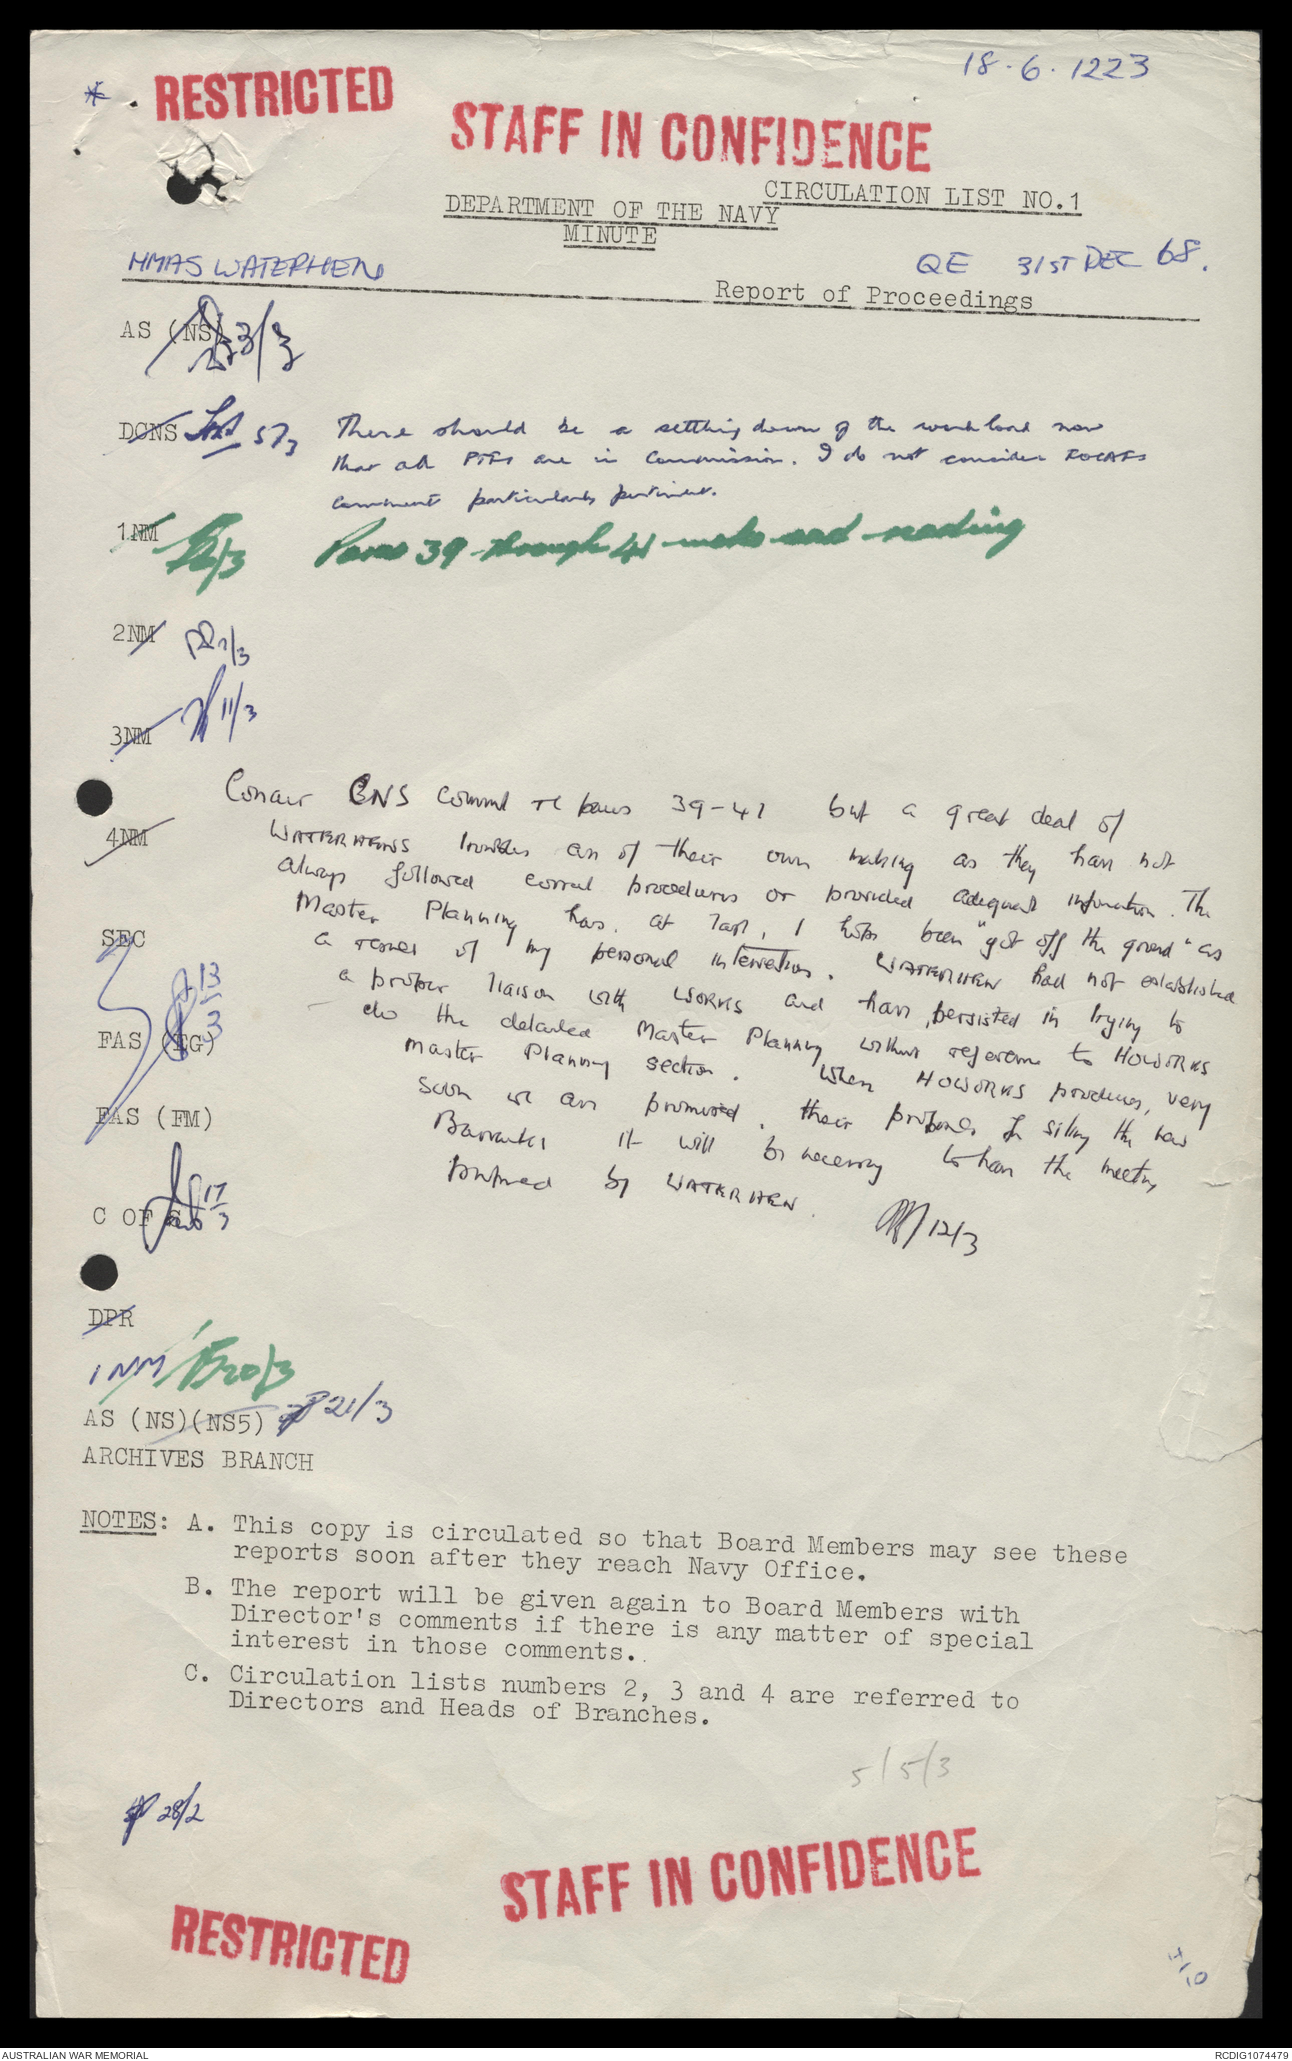 18.6.1223
* RESTRICTED
STAFF IN CONFIDENCE
CIRCULATION LIST NO.1
DEPARTMENT OF THE NAVY
MINUTE
HMAS WATERHEN
QE 31ST DEC 68.
Report of Proceedings
AS (NS) 3/3
DCNS 5/3
There should be a settling down of the work load now
that all are in Commission. I do not consider
comment particularly pertinent.
1NM /3
Paras 39 through 41 make sad reading
2NM 7/3
3NM 11/3
4NM
Concur CNS comment re paras 39-41 but a great deal of
WATERHENS troubles are of their own making as they have not
always followed correct procedures or provided adequate information. The
Master Planning has, at last, I hope been "got off the ground" as
a result of my personal intervention. WATERHEN had not established
a proper liaison with WORKS and have persisted in trying to
do the detailed Master Planning without reference to HQWORKS
Master Planning section. When HQWORKS produces, very
soon we are promised, their proposals for siting the new
it will be necessary to have the meeting
by WATERHEN.
12/3
SEC
13/3
FAS (EG)
FAS (FM)
C OF S 17/3
DPR
1NM 20/3
AS (NS)(NS5) 21/3
ARCHIVES BRANCH
NOTES: A. This copy is circulated so that Board Members may see these
reports soon after they reach Navy Office.
B. The report will be given again to Board Members with
Director's comments if there is any matter of special
interest in those comments.
C. Circulation lists numbers 2, 3 and 4 are referred to
Directors and Heads of Branches.
5/5/3
28/2
STAFF IN CONFIDENCE
RESTRICTED
AUSTRALIAN WAR MEMORIAL
RCDIG1074479